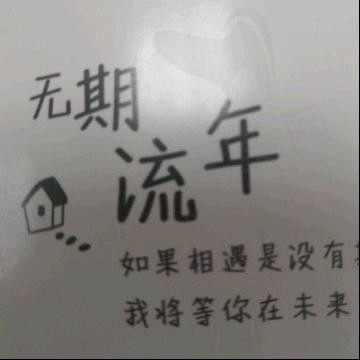 无期
流年
如果相遇是没有
我将等你在未来